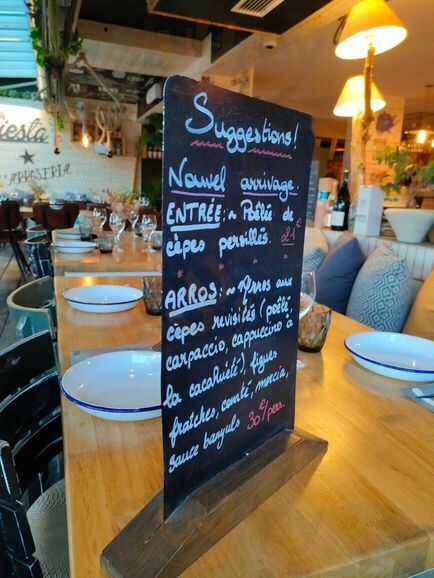 Suggestions!
Nouvel arrivage.
ENTRÉE:~ Poêlée de
cèpes persillés. 21€
" " " "
ARROS:~ Arros aux
cèpes revisités (poêlé,
carpaccio, cappuccino à
la cacahuète), figues
fraîches, comté, morcia,
sauce banyuls 30€/pers.
iesta
ARROSERIA